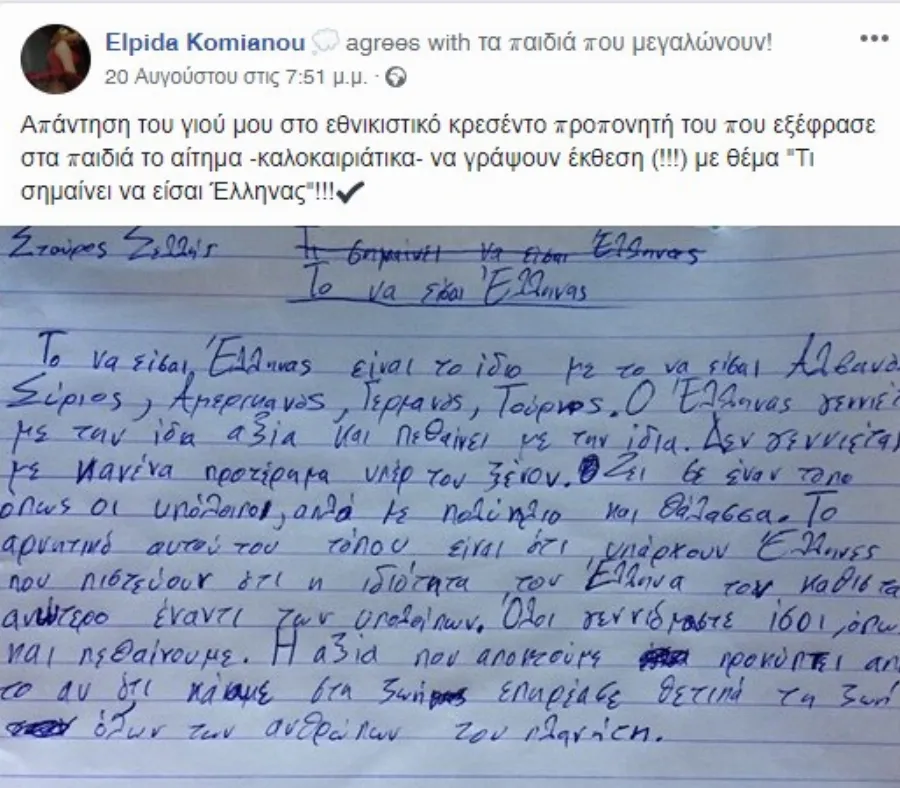 Elpida Komianou agrees with τα παιδιά που μεγαλώνουν!
20 Αυγούστου στις 7:51 μ.μ. ·
Απάντηση του γιού μου στο εθνικιστικό κρεσέντο προπονητή του που εξέφρασε
στα παιδιά το αίτημα -καλοκαιριάτικα- να γράψουν έκθεση (!!!) με θέμα "Τι
σημαίνει να είσαι Έλληνας"!!!✔
Σταύρος Σελλής Τι σημαίνει να είσαι Έλληνας
Το να είσαι Έλληνας
Το να είσαι Έλληνας είναι το ίδιο με το να είσαι Αλβανός
Σύριος, Αμερικανός, Γερμανός, Τούρκος. Ο Έλληνας γεννιέτ
με την ίδια αξία και πεθαίνει με την ίδια. Δεν γεννιέται
με κανένα προτέρημα υπέρ του ξένου. Ζει σε έναν τόπο
όπως οι υπόλοιποι, αλλά με πολύ ήλιο και θάλασσα. Το
αρνητικό αυτού του τόπου είναι ότι υπάρχουν Έλληνες
που πιστεύουν ότι η ιδιότητα του Έλληνα τον καθιστά
ανώτερο έναντι των υπολοίπων. Όλοι γεννιόμαστε ίσοι, όπω
και πεθαίνουμε. Η αξία που αποκτούμε προκύπτει απ
το αν ότι κάναμε στη ζωή επηρέασε θετικά τη ζωή
όλων των ανθρώπων του πλανήτη.